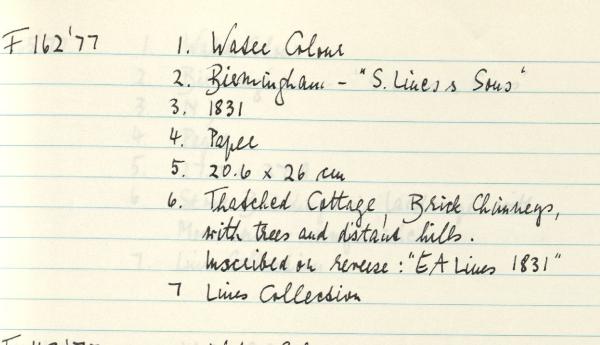 F162'77 1. Water Colour
2. Birmingham - "S. Lines & Sons"
3. 1831
4. Paper
5. 20.6 x 26 cm
6. Thatched Cottage, Brick Chimneys,
with trees and distant hills.
Inscribed on reverse: "EA Lines 1831"
7 Lines Collection